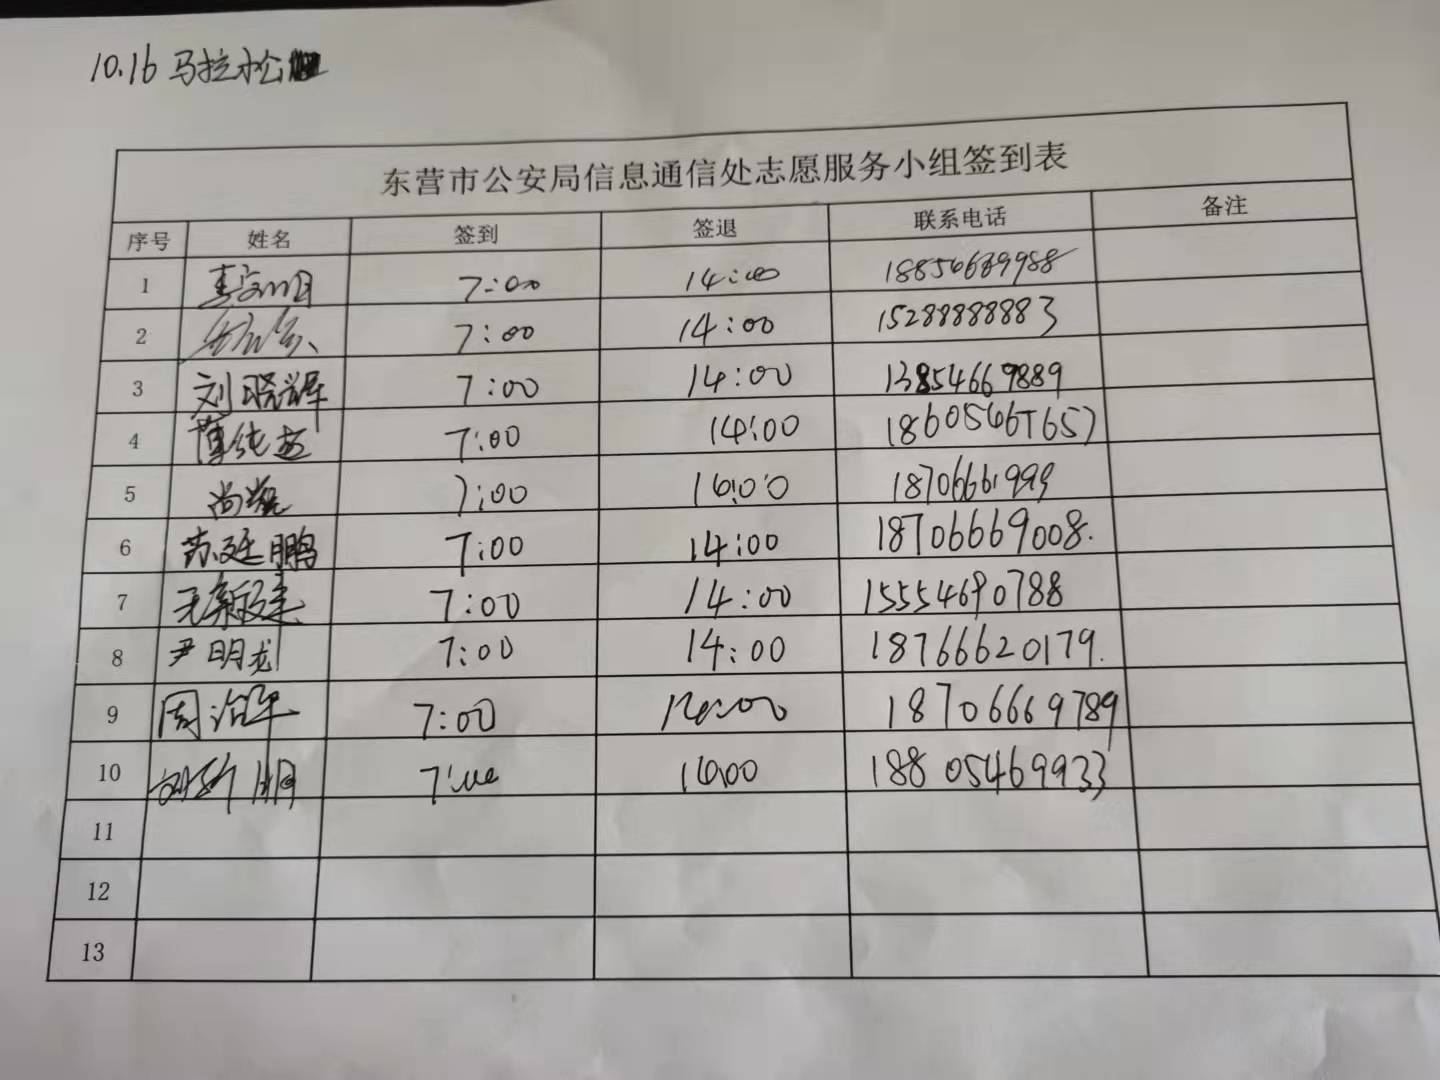 10.16 马拉松
东营市公安局信息通信处志愿服务小组签到表
序号 姓名 签到 签退 联系电话 备注
1 7:00 14:00 18854669988
2 7:00 14:00 15288888883
3 刘晓辉 7:00 14:00 13854669889
4 薄纯超 7:00 14:00 18605467657
5 尚 7:00 14:00 18706661999
6 苏廷鹏 7:00 14:00 18706669008.
7 7:00 14:00 15554690788
8 尹明龙 7:00 14:00 18766620179.
9 周治军 7:00 14:00 18706669789
10 7:00 14:00 18805469933
11
12
13